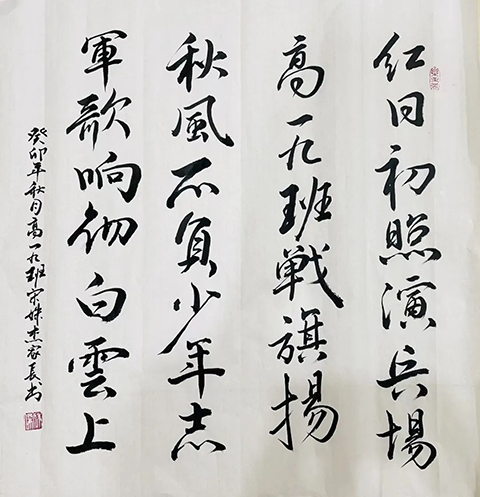 红日初照演兵場
高一九班戦旗揚
秋風不負少年志
軍歌响彻白雲上
癸卯年秋月高一九班宋姝杰家長书